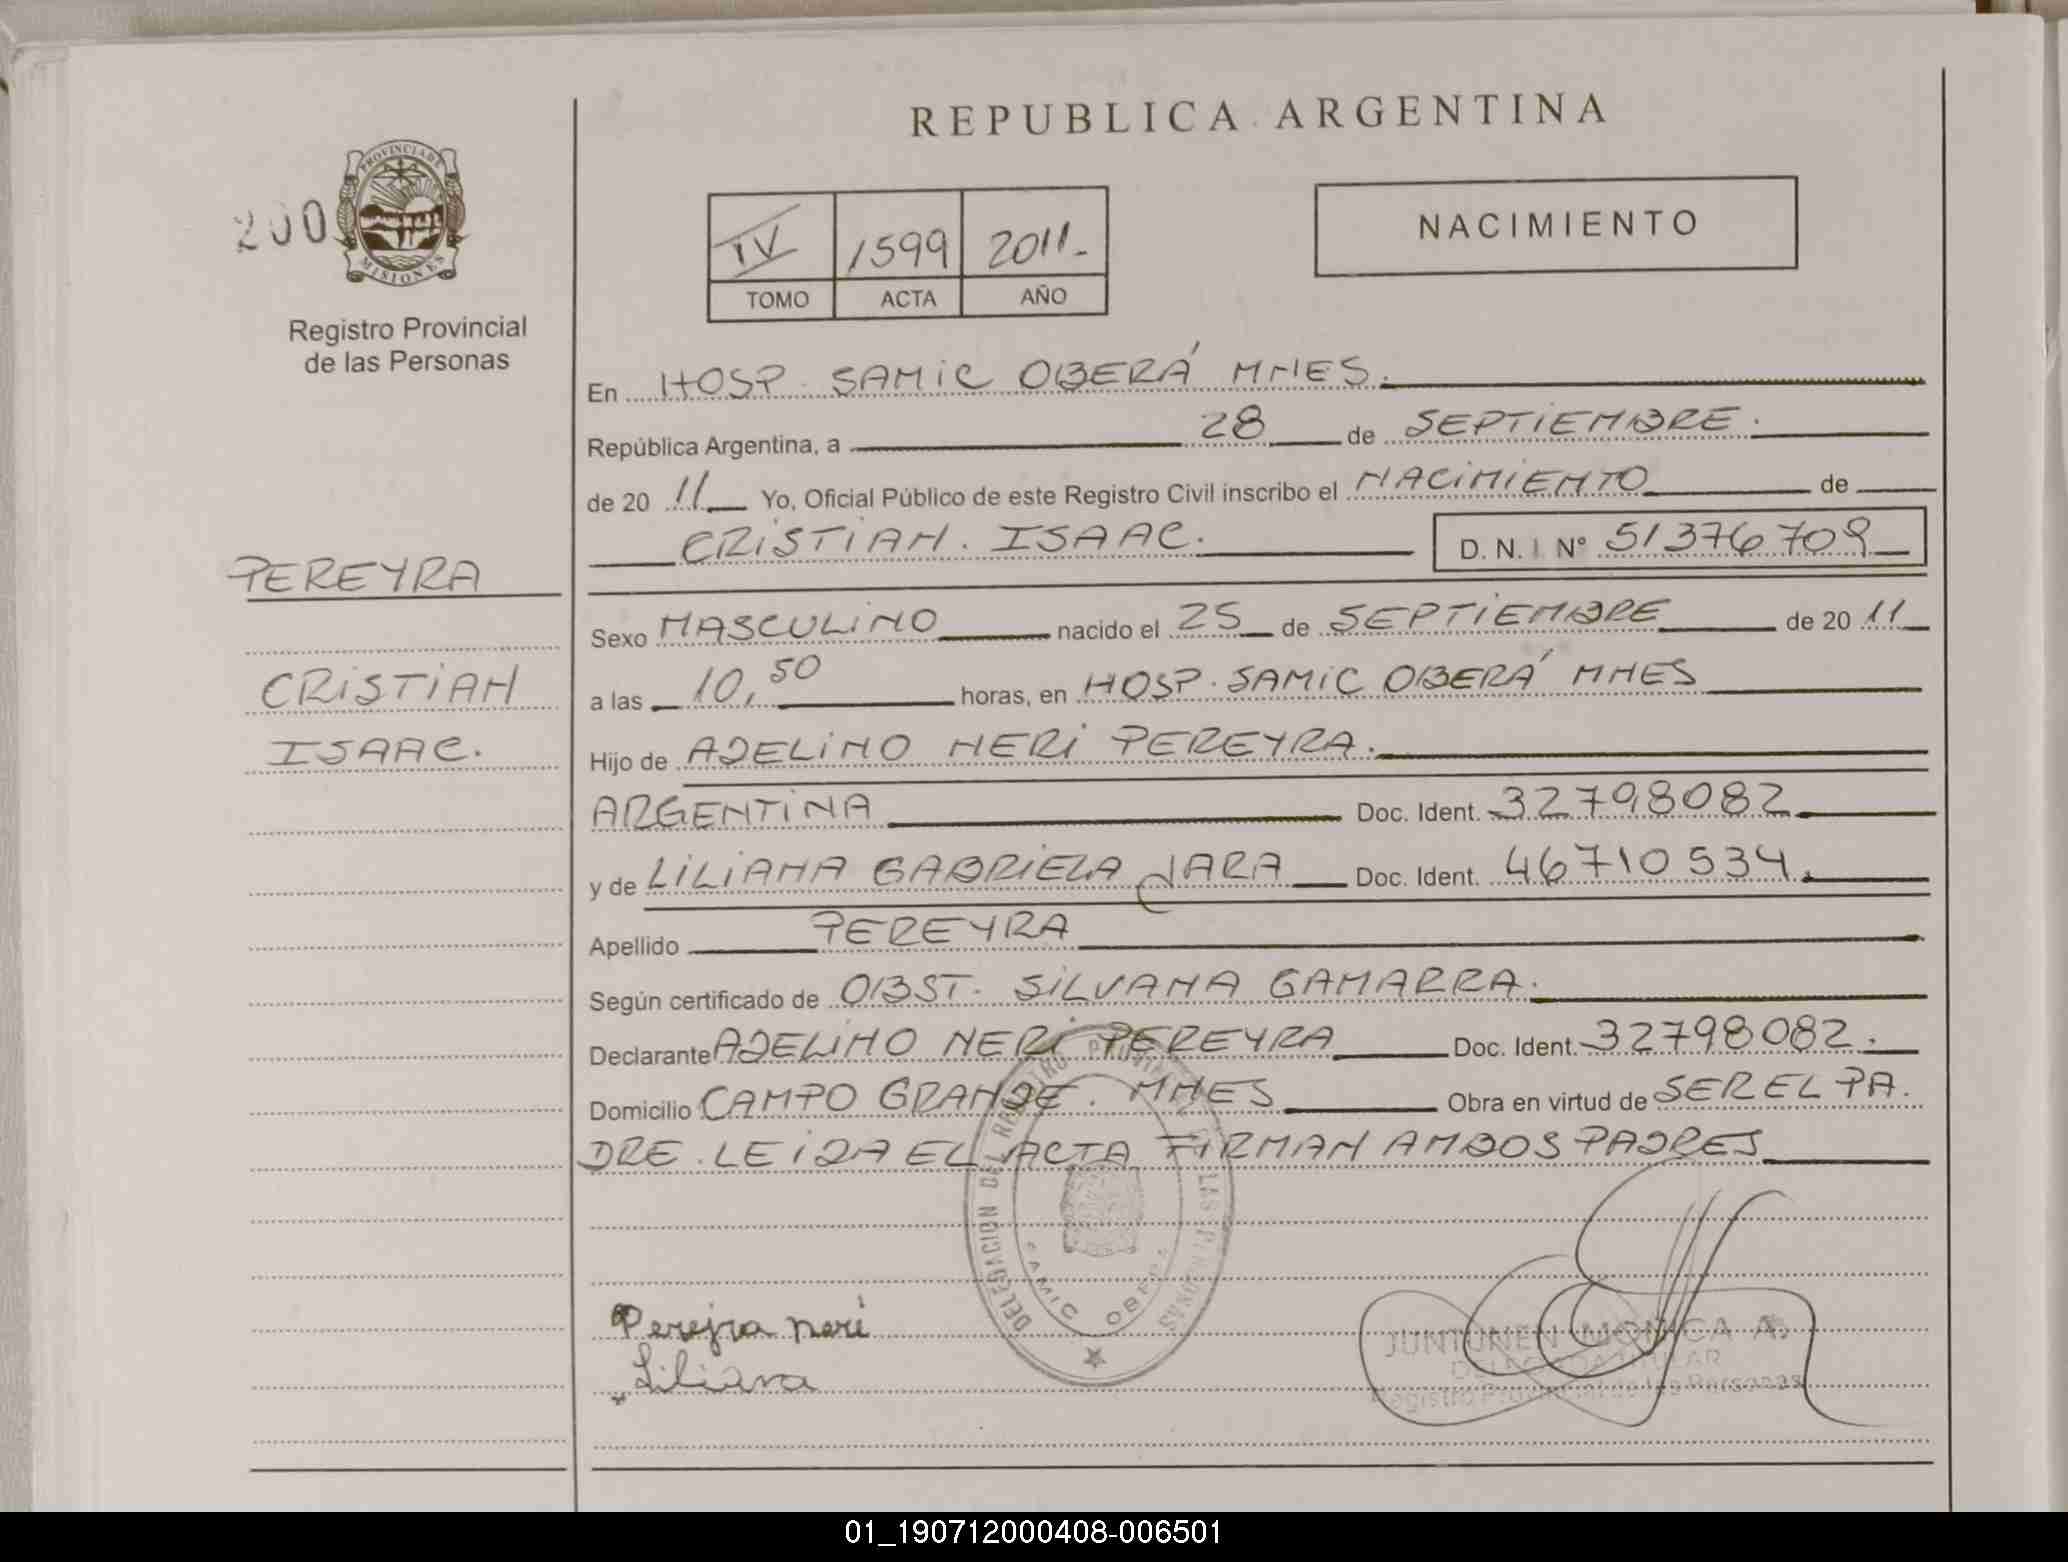 REPUBLICA ARGENTINA
200
PROVINCIA DE
MISIONES
Registro Provincial
de las Personas
IV 1599 2011.-
TOMO ACTA AÑO
NACIMIENTO
En HOSP. SAMIC OBERÁ MNES.
República Argentina, a 28 de SEPTIEMBRE.
de 20 11 Yo, Oficial Público de este Registro Civil inscribo el NACIMIENTO de
CRISTIAN. ISAAC. D. N. I. Nº 51376709
PEREYRA
CRISTIAN
ISAAC.
Sexo MASCULINO nacido el 25 de SEPTIEMBRE de 20 11
a las 10,50 horas, en HOSP. SAMIC OBERÁ MNES
Hijo de ADELINO NERI PEREYRA.
ARGENTINA Doc. Ident. 32798082
y de LILIANA GABRIELA JARA Doc. Ident. 46710534.
Apellido PEREYRA
Según certificado de OBST. SILVANA GAMARRA.
Declarante ADELINO NERI PEREYRA Doc. Ident. 32798082.
Domicilio CAMPO GRANDE. MNES Obra en virtud de SER EL PA.
DRE. LEIDA EL ACTA FIRMAN AMBOS PADRES
DELEGACION DEL REGISTRO PROVINCIAL DE LAS PERSONAS
SAMIC OBERA
Perejra neri
Liliana
JUNTUNEN MONICA A.
Registro Provincial de las Personas
01_190712000408-006501